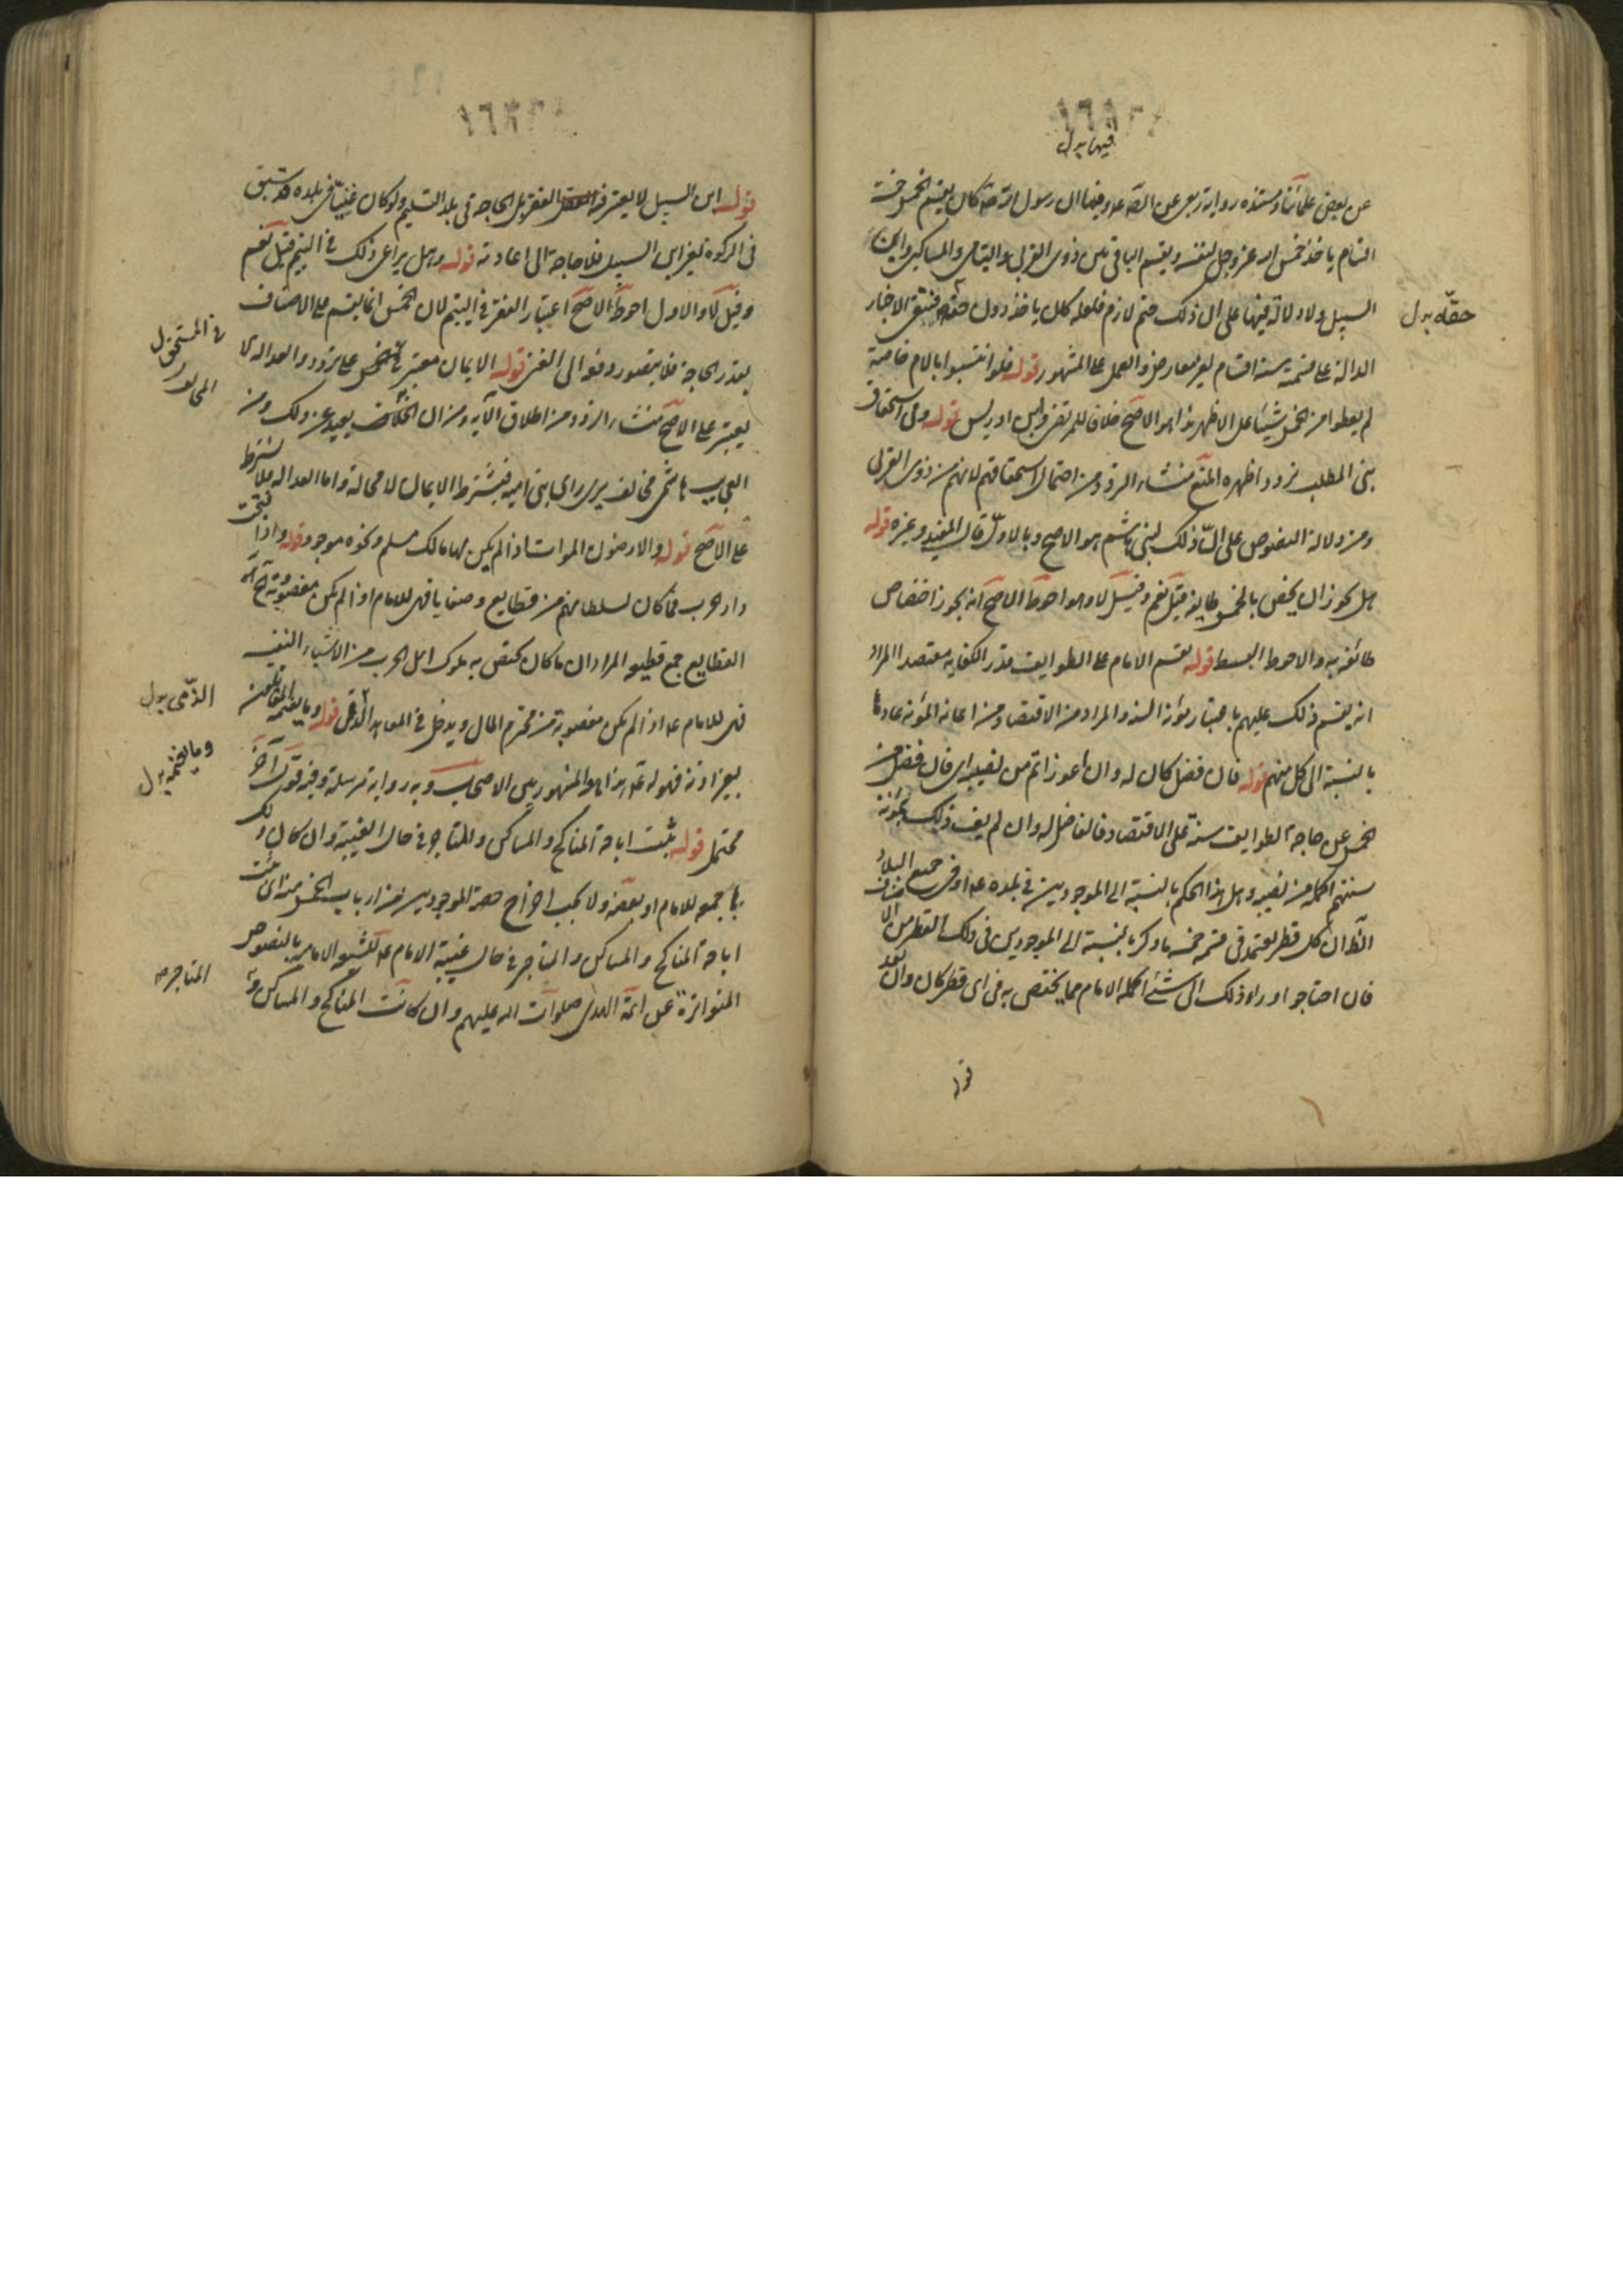 ١٦٨٣٦
فيها بدل
عن بعض علمائنا ومستنده رواية ربعى عن الصّ عه وفيها ان رسول الله صه كان يقسم الخمس خمسة
اقسام ياخذ خمس الله عز وجل لنفسه ويقسم الباقى بين ذوى القربى واليتامى والمساكين وابن
السبيل ولا دلالة فيها على ان ذلك حتم لازم فلعله كان ياخذ دون حقّه فتبقى الاخبار
حقّه بدل
الدالة على قسمته ستة اقسام بغير معارض والعمل على المشهور قوله فلو انتسبوا بالام خاصة
لم يعطوا من الخمس شيئا على الاظهر هذا هو الاصح خلافا للمرتضى وابن ادريس قوله وفى استحقاق
بنى المطلب تردد اظهره المنع منشاء التردد من احتمال استحقاقهم لانهم من ذوى القربى
ومن دلالة النصوص على انّ ذلك لبنى هاشم هو الاصح وبالاول قال المفيد وغيره قوله
هل يجوز ان يخص بالخمس طايفة قيل نعم وقيل لا وهو احوط الاصح انه يجوز اختصاص
طائفة به والاحوط البسط قوله يقسم الامام على الطوايف قدر الكفاية مقتصدا المراد
انه يقسم ذلك عليهم باعتبار مؤنة السنة والمراد من الاقتصاد من اعانة المؤنة عادة
بالنسبة الى كل منهم قوله فان فضل كان له وان اعوز اتم من نصيبه اى فان فضل من
الخمس عن حاجة الطوايف سنة على الاقتصاد فالفاضل له وان لم يف ذلك بمؤنة
سنتهم اكمله من نصيبه وهل هذا الحكم بالنسبة الى الموجودين فى بلده عه او فى جميع البلاد
الظ ان كل قطر يعتمد فى قسمة خمسه ما ذكر بالنسبة الى الموجودين فى ذلك القطر من الاصناف
فان احتاجوا وراء ذلك الى شئ اكمله الامام مما يختص به فى اى قطر كان وان بعد
قوله
١٦٨٣٦
قوله ابن السبيل لا يعتبر فيه الفقر بل الحاجة فى بلد التسليم ولو كان غنيّا فى بلده قد سبق
فى الزكوة تفسير ابن السبيل فلا حاجة الى اعادته قوله وهل يراعى ذلك فى اليتيم قيل نعم
وقيل لا والاول احوط الاصح اعتبار الفقر فى اليتيم لان الخمس انما يقسم على الاصناف
بقدر الحاجة فلا يتصور دفعه الى الغنى قوله الايمان معتبر فى الخمس على تردد والعدالة لا
فى المستحق بدل
يعتبر على الاصح منشاء التردد من اطلاق الآية ومن ان المخالف بعيد عن ذلك ومن
العجايب هاشمى مخالف يرى راى بنى امية فيشترط الايمان لا محالة واما العدالة فلا تشترط
على الاصح قوله والارضون الموات اذا لم يكن لها مالك مسلم ونحوه موجود قوله واذا فتحت
دار حرب فما كان لسلطانهم من قطايع وصفايا فهى للامام اذا لم يكن مغصوبة من
القطايع جمع قطيعة والمراد ان ما كان يختص به ملوك اهل الحرب من الاشياء النفيسة
فهى للامام عه اذا لم يكن مغصوبة من محترم المال ويدخل فى المعاهد الذمى قوله وما يغنمه المقاتلون
الذّمى بدل
بغير اذنه فهو له عه هذا هو المشهور بين الاصحاب وبه رواية مرسلة وفيه قول آخر
وما يغنمه بدل
محتمل قوله يثبت اباحة المناكح والمساكن والمتاجر فى حال الغيبة وان كان ذلك
باجمعه للامام او بعضه ولا يجب اخراج حصة الموجودين من ارباب الخمس منه اى يثبت
اباحة المناكح والمساكن والمتاجر فى حال غيبة الامام عه لشيعة الامام بالنصوص
المتواترة عن ائمة الهدى صلوات الله عليهم وان كانت المناكح والمساكن و
المتاجر صه